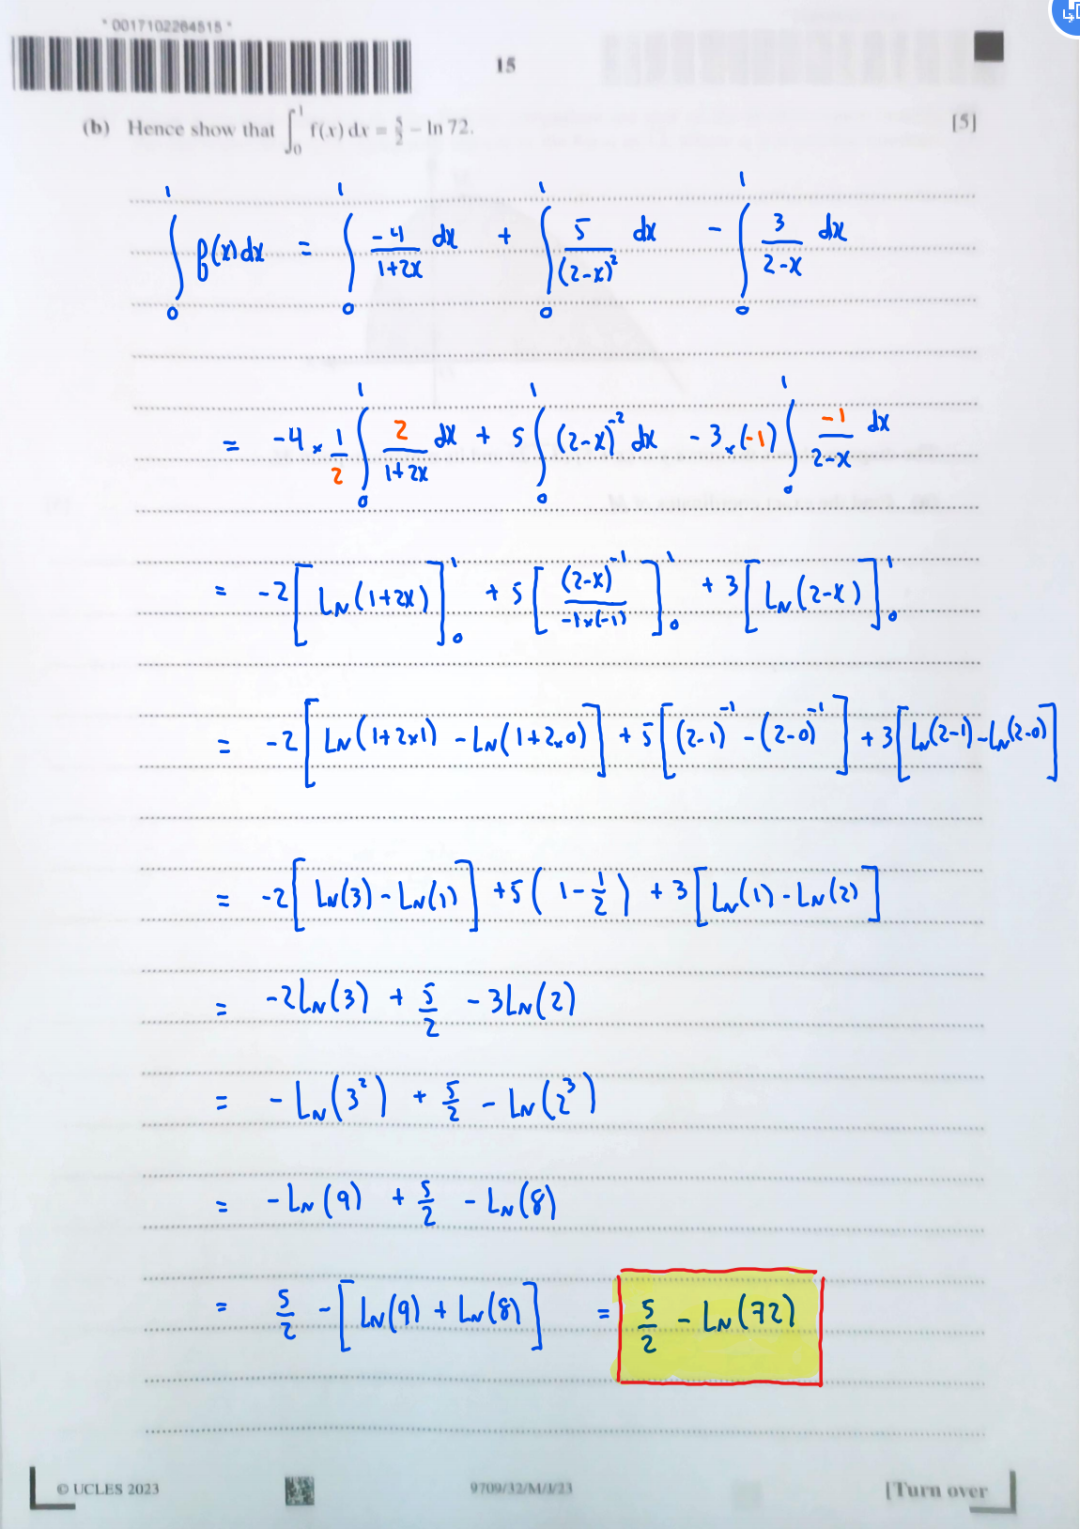 * 0017102264515 *
15
(b) Hence show that ∫₀¹ f(x) dx = 5/2 − ln 72. [5]
∫₀¹ f(x) dx = ∫₀¹ −4/(1+2x) dx + ∫₀¹ 5/(2−x)² dx − ∫₀¹ 3/(2−x) dx
= −4 × 1/2 ∫₀¹ 2/(1+2x) dx + 5 ∫₀¹ (2−x)⁻² dx − 3 × (−1) ∫₀¹ −1/(2−x) dx
= −2 [LN(1+2x)]₀¹ + 5 [(2−x)⁻¹/(−1×(−1))]₀¹ + 3 [LN(2−x)]₀¹
= −2 [LN(1+2×1) − LN(1+2×0)] + 5 [(2−1)⁻¹ − (2−0)⁻¹] + 3 [LN(2−1) − LN(2−0)]
= −2 [LN(3) − LN(1)] + 5 (1 − 1/2) + 3 [LN(1) − LN(2)]
= −2LN(3) + 5/2 − 3LN(2)
= −LN(3²) + 5/2 − LN(2³)
= −LN(9) + 5/2 − LN(8)
= 5/2 − [LN(9) + LN(8)] = 5/2 − LN(72)
© UCLES 2023 9709/32/M/J/23 [Turn over